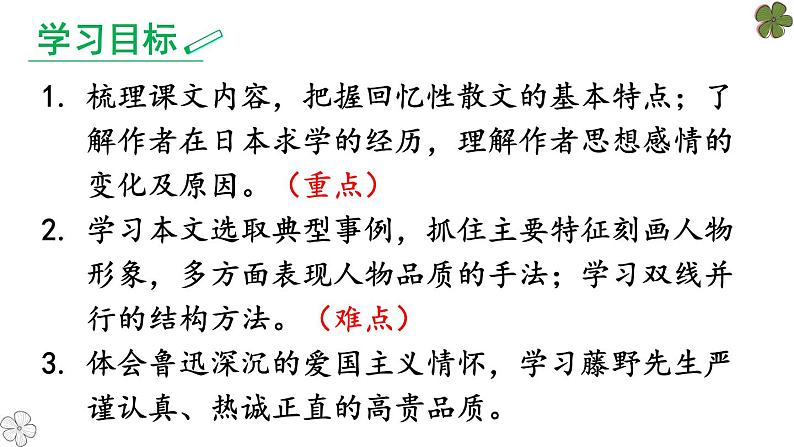 学习目标
1. 梳理课文内容，把握回忆性散文的基本特点；了
解作者在日本求学的经历，理解作者思想感情的
变化及原因。（重点）
2. 学习本文选取典型事例，抓住主要特征刻画人物
形象，多方面表现人物品质的手法；学习双线并
行的结构方法。（难点）
3. 体会鲁迅深沉的爱国主义情怀，学习藤野先生严
谨认真、热诚正直的高贵品质。